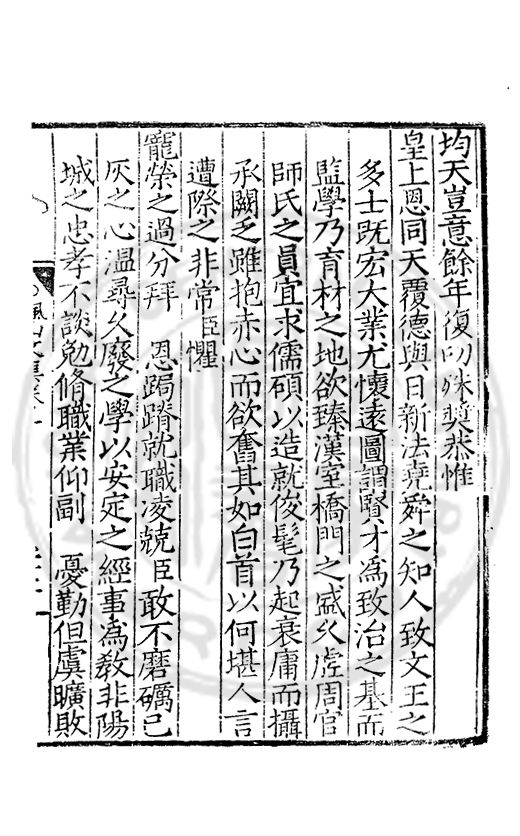 均天豈意餘年復叨殊奬恭惟
皇上恩同天覆德與日新法堯舜之知人致文王之
多士既宏大業尤懷遠圖謂賢才為致治之基而
監學乃育材之地欲臻漢室橋門之盛久虗周官
師氏之員宜求儒碩以造就俊髦乃起衰庸而攝
承闕乏雖抱赤心而欲奮其如白首以何堪人言
遭際之非常臣懼
寵榮之過分拜　恩跼蹐就職凌兢臣敢不磨礪已
灰之心温尋久廢之學以安定之經事為教非陽
城之忠孝不談勉脩職業仰副　憂勤但虞曠敗